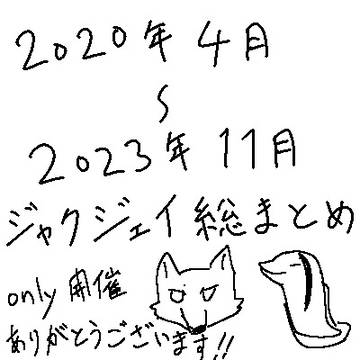 2020年4月
〜
2023年11月
ジャクジェイ総まとめ
only開催
ありがとうございます!!